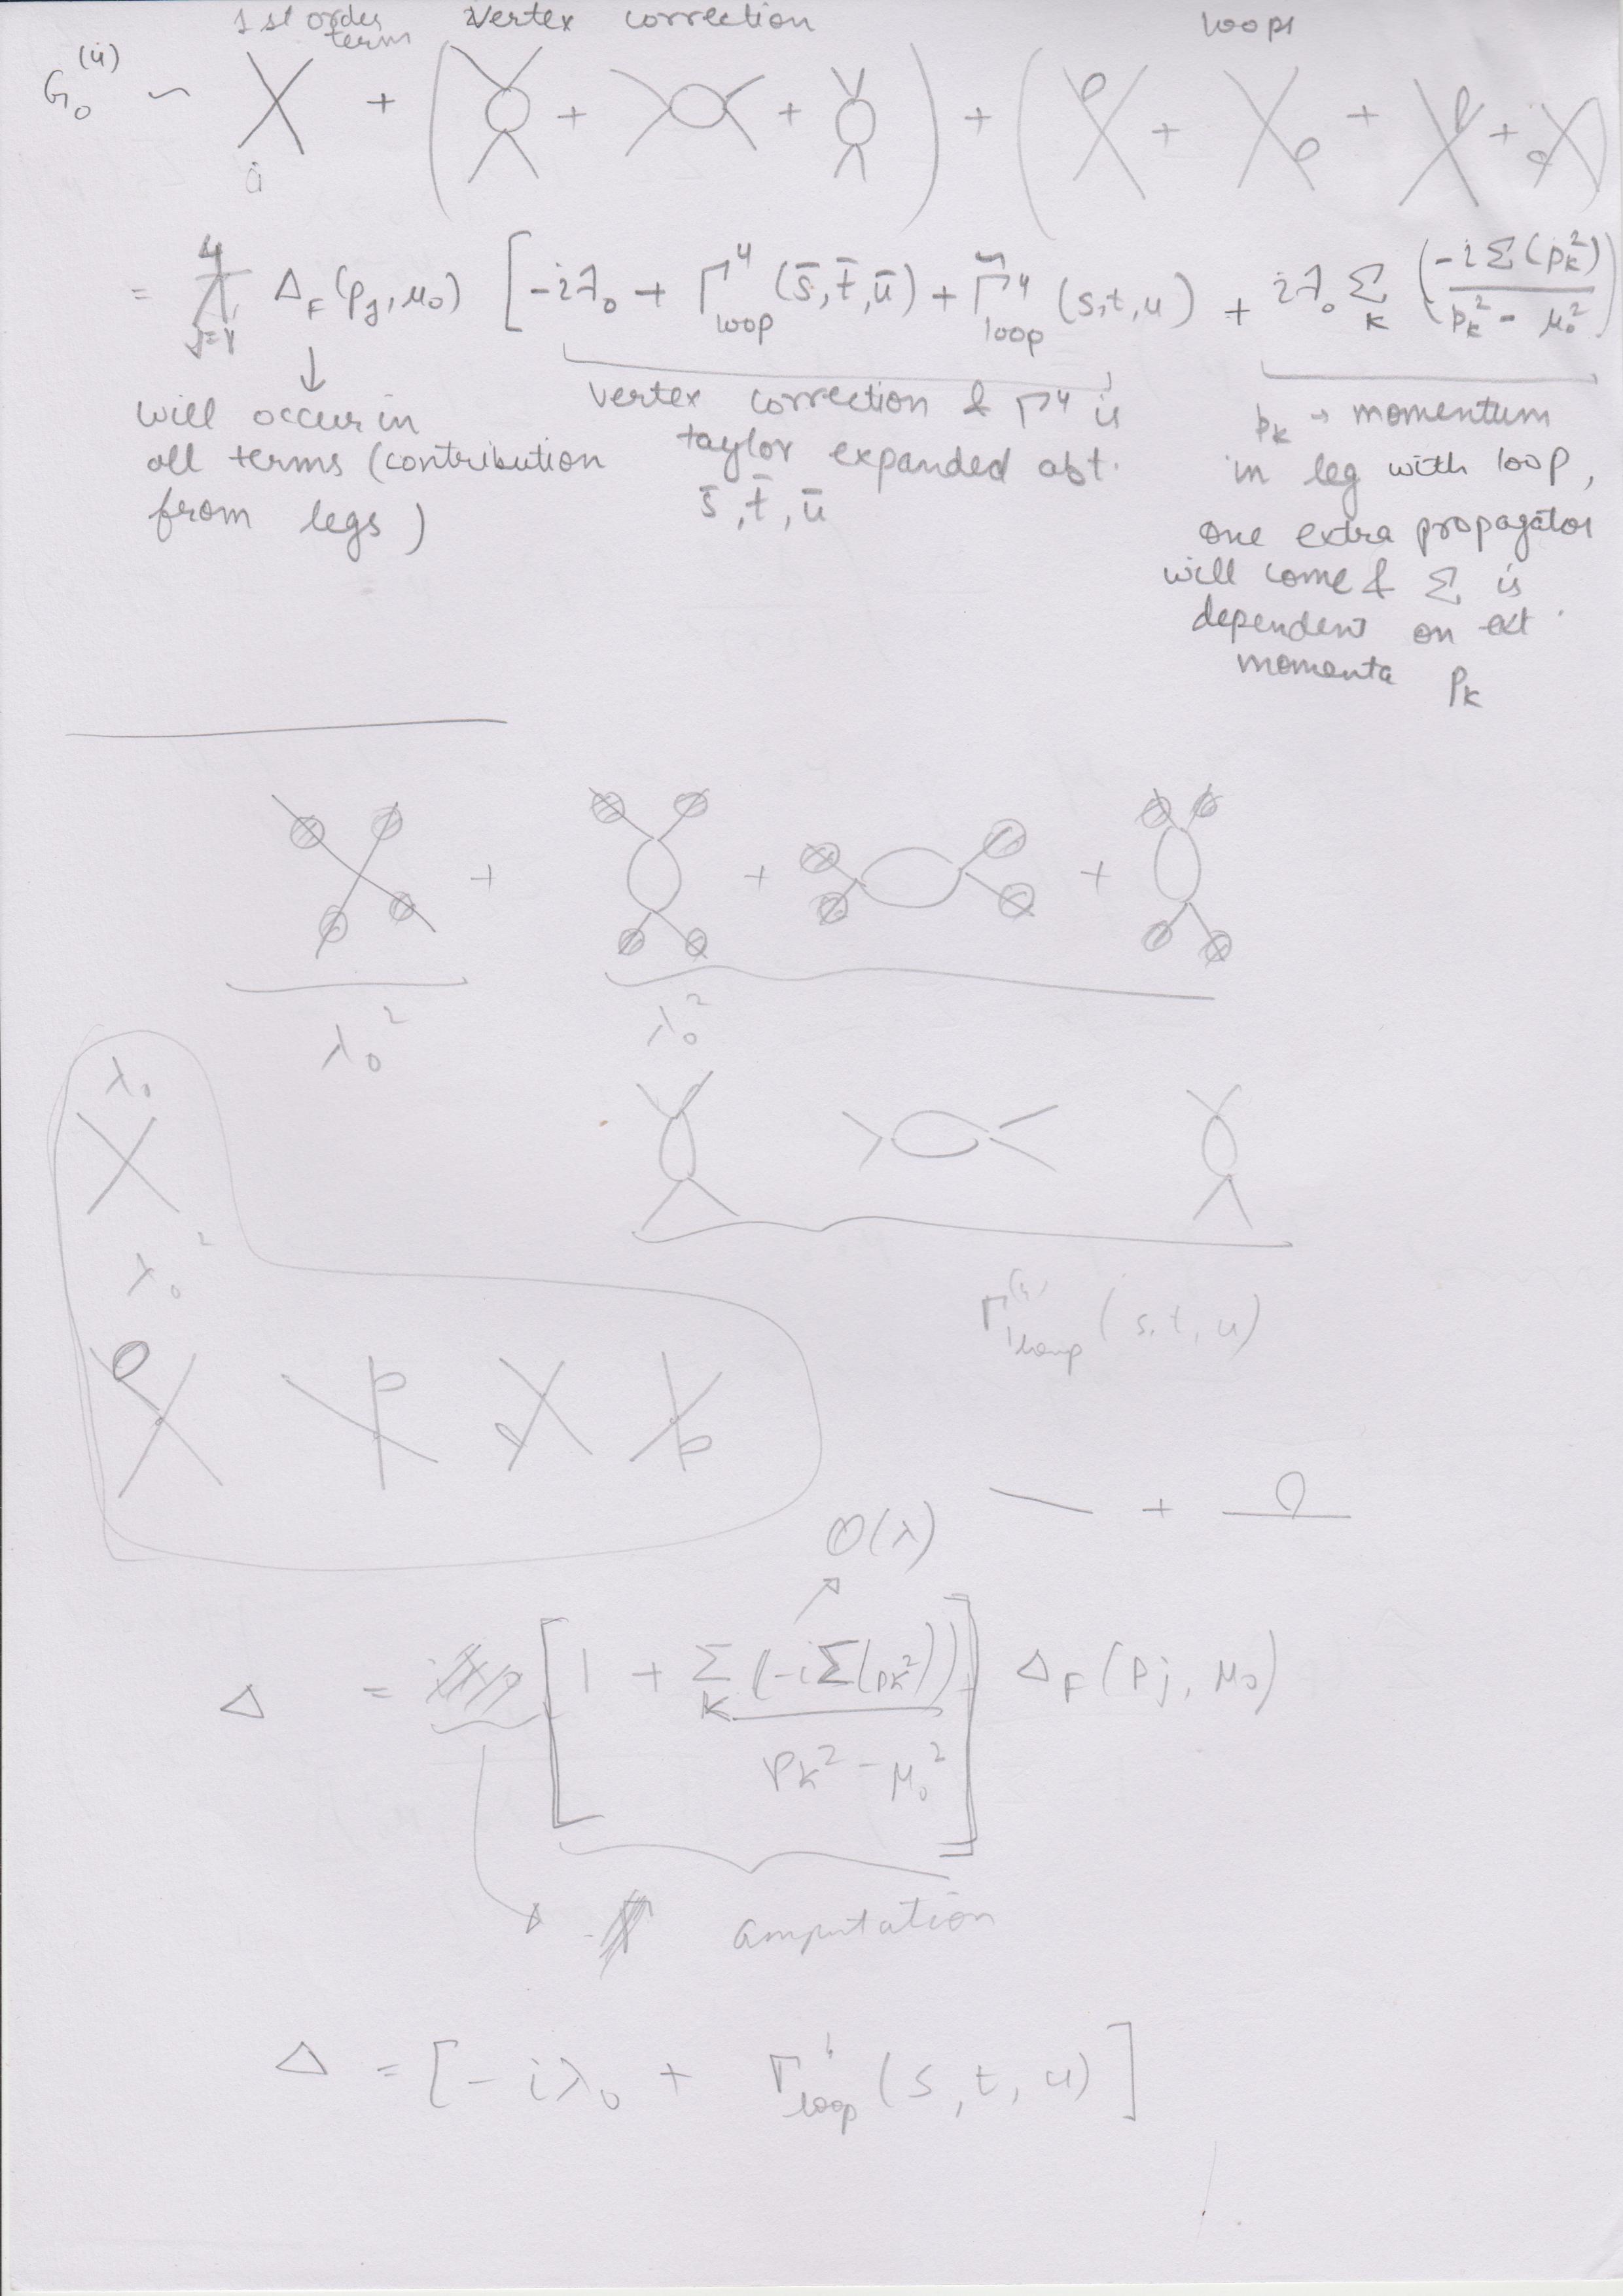 1st order term vertex correction loops
G₀⁽⁴⁾ ~ + ( + + ) + ( + + + )
= ∏ⱼ₌₁⁴ Δ_F (pⱼ, μ₀) [ -iλ₀ + Γ⁴_loop (s̄, t̄, ū) + Γ̃⁴_loop (s, t, u) + iλ₀ Σ_k ( -iΣ(p_k²) / p_k² - μ₀² )
↓
will occur in
all terms (contribution
from legs)
vertex correction & Γ⁴ is
taylor expanded abt.
s̄, t̄, ū
p_k → momentum
in leg with loop,
one extra propagator
will come & Σ is
dependent on ext.
momenta p_k
+ + +
λ₀² λ₀²
λ₀
λ₀²
Γ⁽⁴⁾_loop (s, t, u)
+
O(λ)
Δ = [ 1 + Σ_k (-iΣ(p_k²)) / p_k² - μ₀² ] Δ_F (pj, μ₀)
amputation
Δ = [ -iλ₀ + Γ_loop (s, t, u) ]